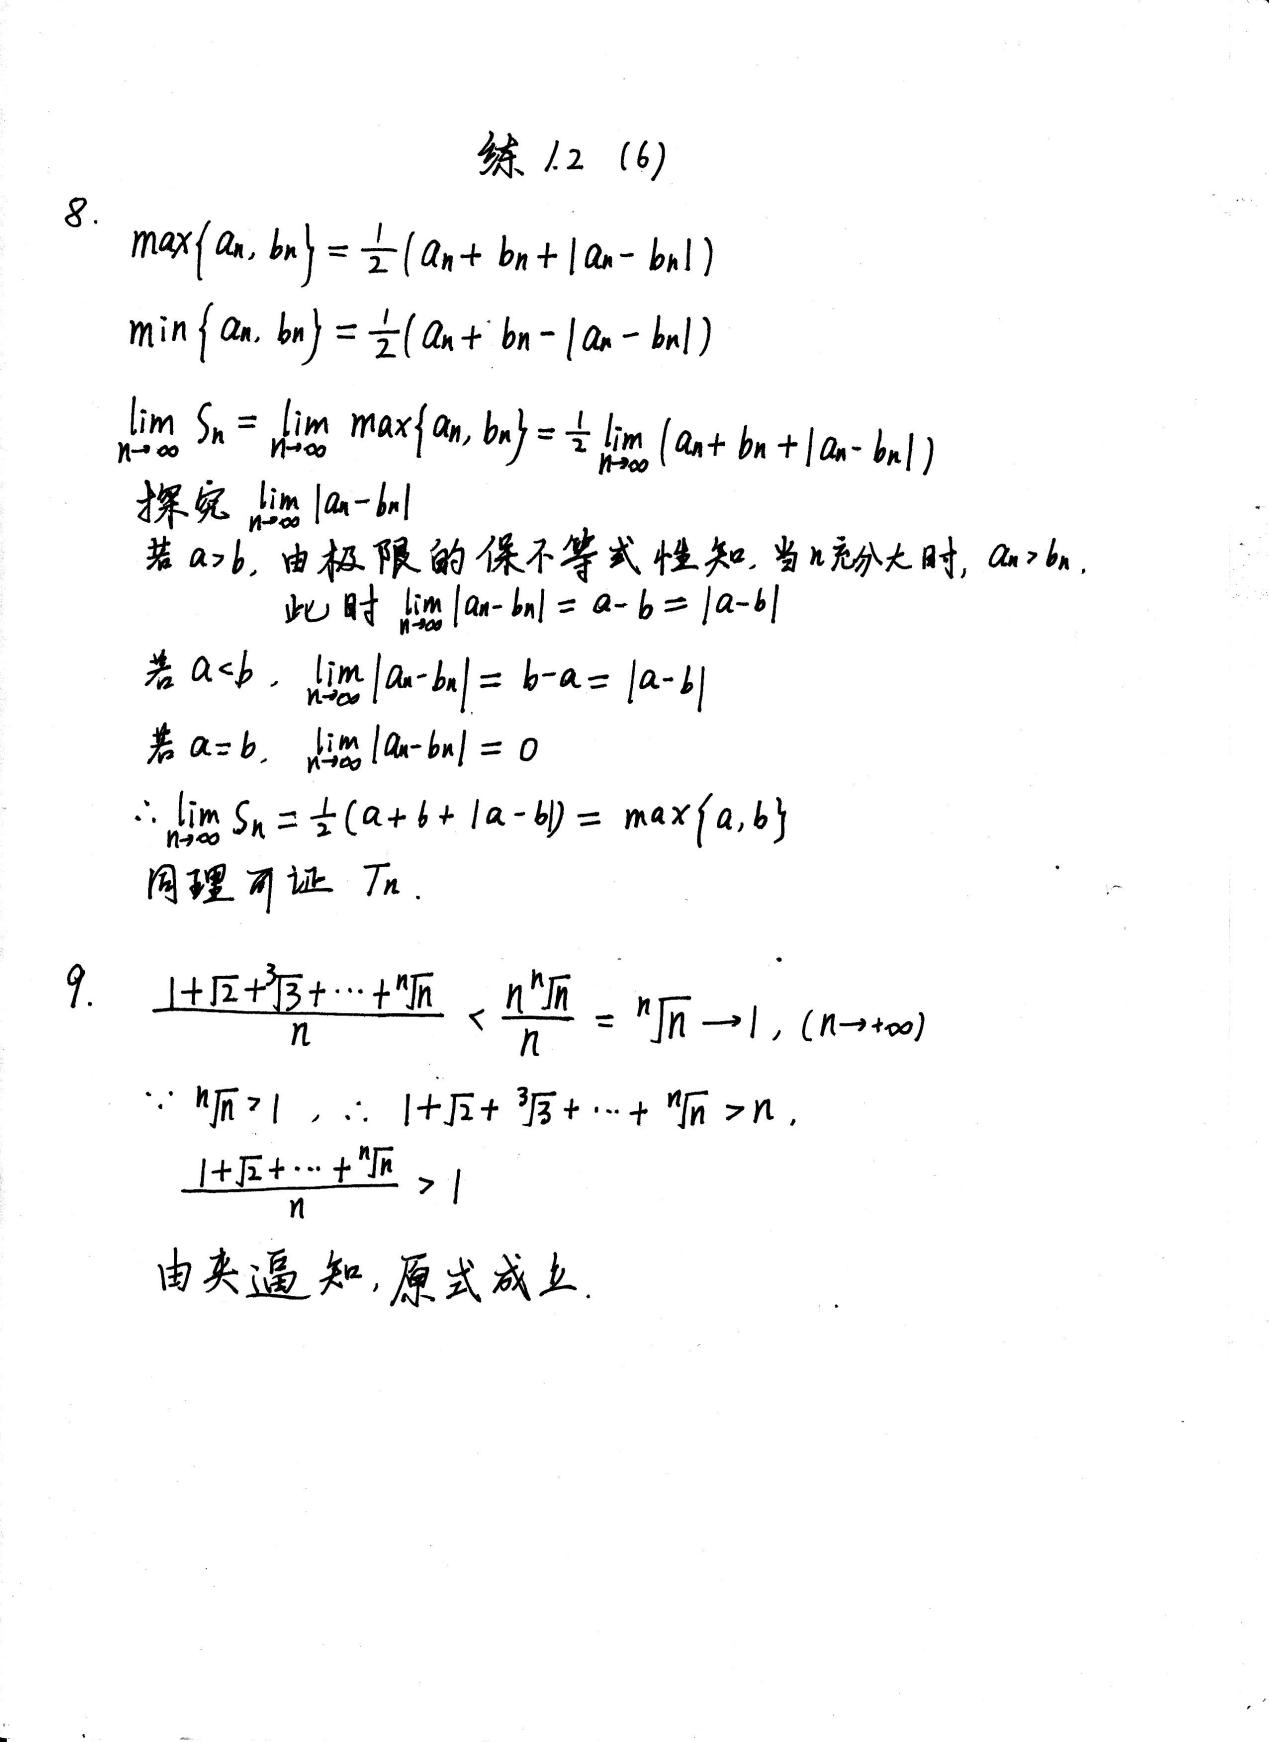 练 1.2 (6)
8.
max{an, bn} = 1/2 (an + bn + |an - bn|)
min{an, bn} = 1/2 (an + bn - |an - bn|)
lim n→∞ Sn = lim n→∞ max{an, bn} = 1/2 lim n→∞ (an + bn + |an - bn|)
探究 lim n→∞ |an - bn|
若 a>b, 由极限的保不等式性知, 当n充分大时, an > bn.
此时 lim n→∞ |an - bn| = a - b = |a - b|
若 a<b, lim n→∞ |an - bn| = b - a = |a - b|
若 a=b, lim n→∞ |an - bn| = 0
∴ lim n→∞ Sn = 1/2 (a + b + |a - b|) = max{a, b}
同理可证 Tn.
9. (1+√2+³√3+⋯+ⁿ√n)/n < (n ⁿ√n)/n = ⁿ√n → 1, (n→+∞)
∵ ⁿ√n > 1, ∴ 1+√2+³√3+⋯+ⁿ√n > n.
(1+√2+⋯+ⁿ√n)/n > 1
由夹逼知, 原式成立.